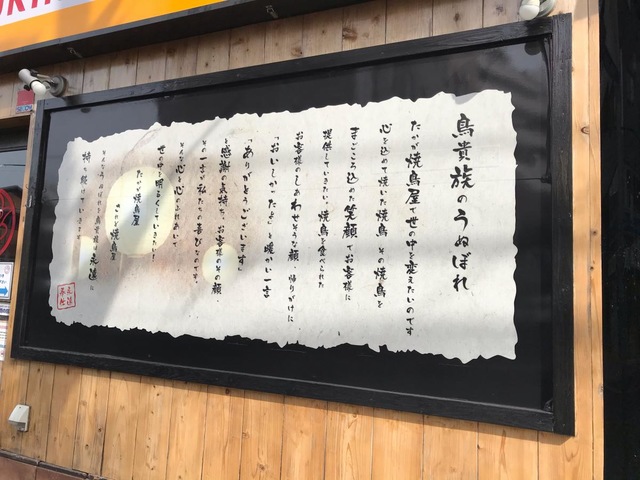 鳥貴族のうぬぼれ
たかが焼鳥屋で世の中を変えたいのです
心を込めて焼いた焼鳥、その焼鳥を
まごころ込めた笑顔でお客様に
提供していきたい。焼鳥を食べられた
お客様のしあわせそうな顔、帰りがけに
「おいしかったよ」と暖かい一言
「ありがとうございます」
と感謝の気持ち、お客様のその顔、
その一言が私たちの喜びなのです。
そんな心と心のふれあいで、
世の中を明るくしていきたい!
たかが焼鳥屋
されど焼鳥屋
そんなうぬぼれを鳥貴族は永遠に
持ち続けていきます